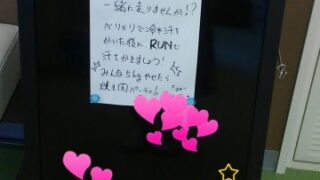 一緒に走りませんか!?
ベリメリで冷や汗を
かいた後に RUNで
汗をかきましょう!
みんな5kgやせたら
焼き肉パーティ!